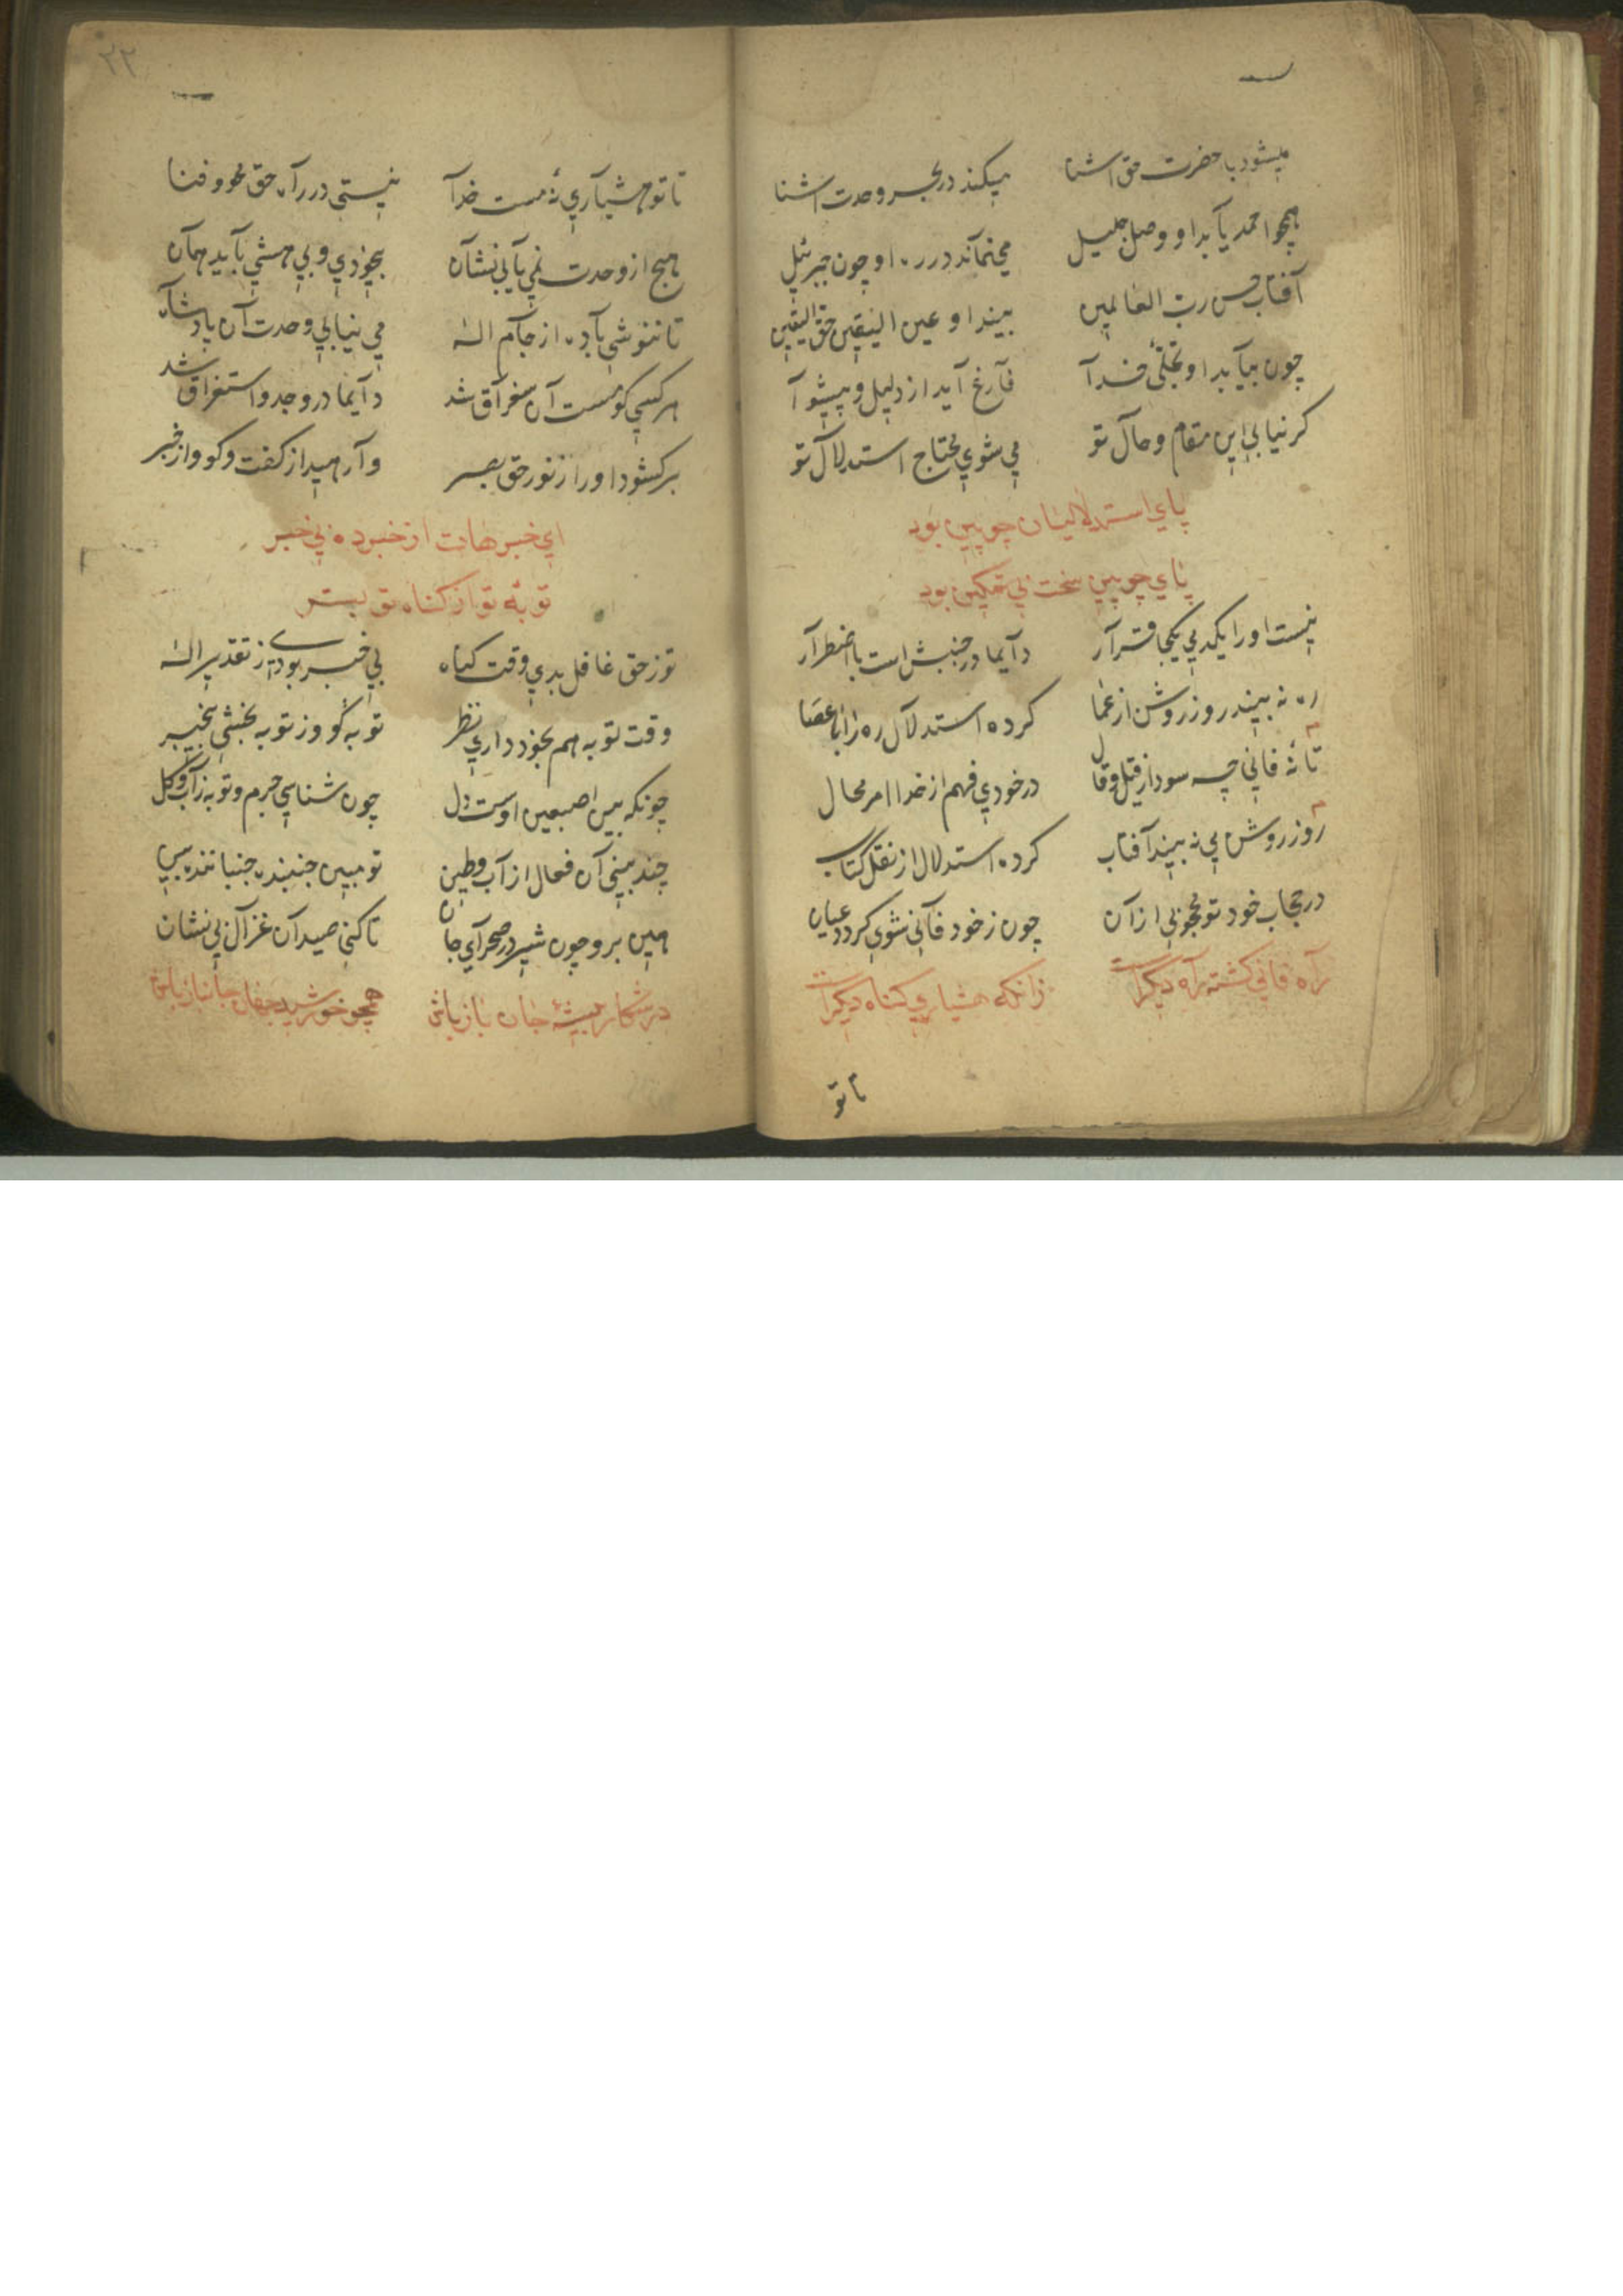 میشود با حضرت حق آشنا میکند در بحر وحدت آشنا
همچو احمد یآبد او وصل جلیل می نمآند در ره او چون جبرئیل
آفتاب حسن رب العالمین بیند او عین الیقین حق الیقین
چون بیآبد او تجلّی خدآ فآرغ آید از دلیل و پیشوآ
کر نیابی این مقام و حآل تو می شوی محتاج استدلآل تو
پای استدلالیان چوبین بود
پای چوبین سخت بی تمکین بود
نیست او را یکدمی یکجا قرآر دآیما در جنبش است با اضطرآر
ره نه بیند روز روشن از عما کرده استدلآل ره را با عصا
تا نهٔ فانی چه سود از قیل و قال در خودی فهم از خدا امر محال
روز روشن می نه بیند آفتاب کرده استدلال از نقل کتاب
در حجاب خود تو محجوبی از آن چون ز خود فآنی شوی کردد عیان
رآه فانی کشته رآه دیکر است زانکه هشیاری کناه دیکر است
تا تو
۲۲
تا تو هشیآری نهٔ مست خدآ نیستی در رآه حق محو و فنا
هیچ از وحدت نمی یآبی نشآن بیخودی و بی هشی بآید همآن
تا ننوشی بآده از جآم اله می نیابی وحدت آن پادشآه
هر کسی کو مست آن سغرآق شد دآیما در وجد و استغراق شد
برکشود او را ز نور حق بصر وآرهید از کفت و کو و از خبر
ای خبرهات از خبرده بی خبر
توبهٔ تو از کناه تو بستر
تو ز حق غافل بدی وقت کناه بی خبر بودی ز تقدیر اله
وقت توبه هم بخود داری نظر توبه کو و ز توبه بخشی بیخبر
چونکه بین اصبعین اوست دل چون شناسی جرم و توبه ز آب و کل
چند بینی آن فعال از آب و طین تو مبین جنبنده جنباننده بین
هین برو چون شیر در صحرآی جان تا کنی صید آن غزآل بی نشان
در شکار بیشهٔ جان باز باش همچو خورشید جهان جانباز باش